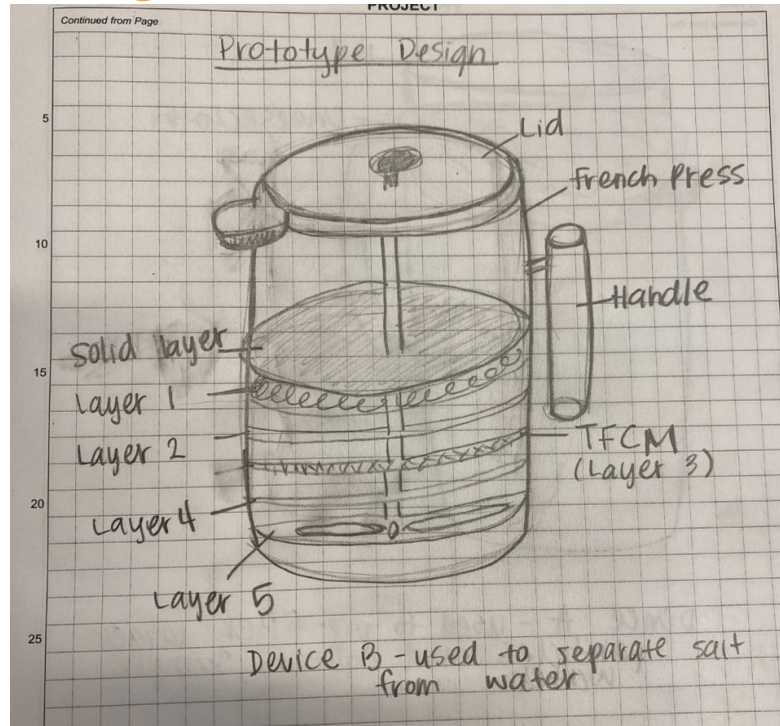 PROJECT
Continued from Page
Prototype Design
5
Lid
French Press
10
Handle
Solid layer
15
Layer 1
Layer 2
TFCM
(Layer 3)
20
Layer 4
Layer 5
25
Device B - used to separate salt
from water